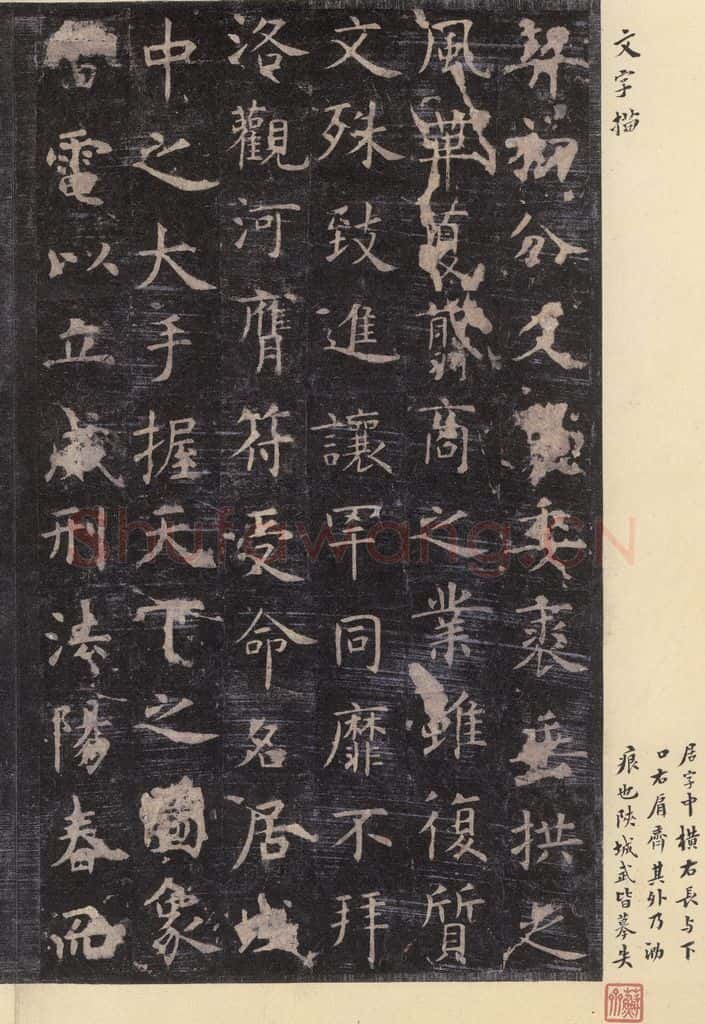 文字描
居字中橫右長与下
口右肩齊其外乃泐
痕也陕城武皆摹失
契初分爻象委裘垂拱之
風革夏翦商之業雖復質
文殊致進讓罕同靡不拜
洛觀河膺符受命名居域
中之大手握天下之圖象
雷電以立威刑法陽春而
Shufawang.CN